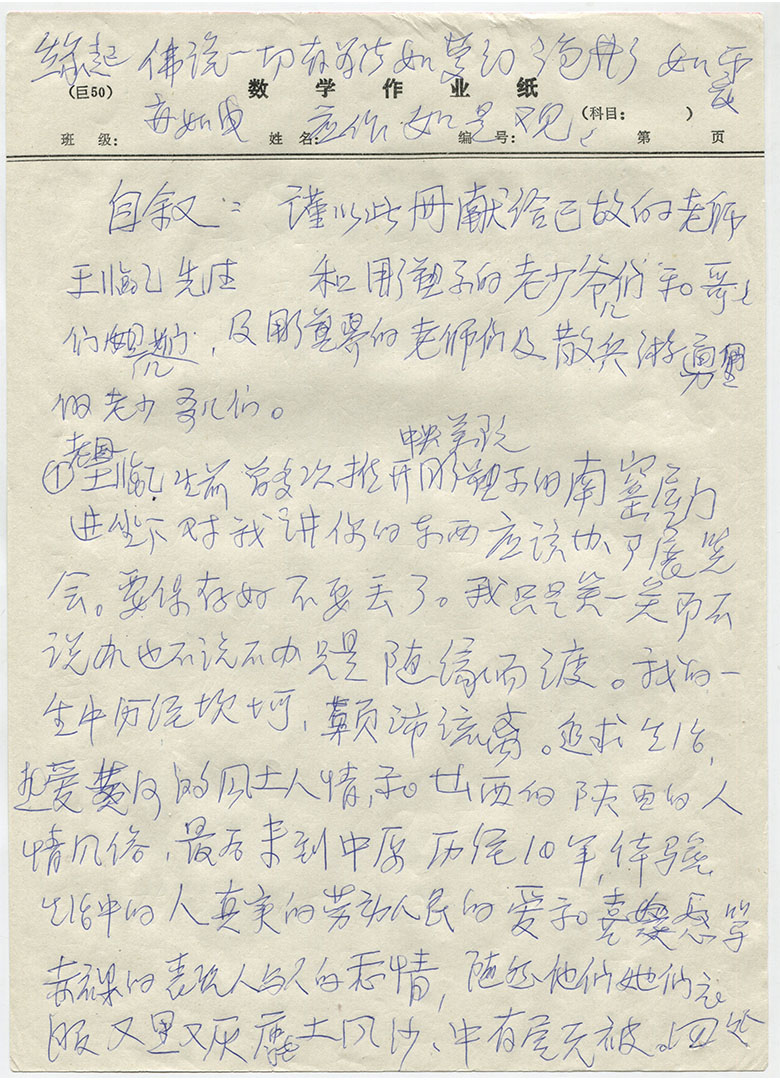 缘起 佛说一切有为法 如梦幻泡影 如露
(巨50) 数学作业纸 (科目: )
亦如电 应作如是观。
班 级: 姓 名: 编 号: 第 页
自叙:谨以此册献给已故的老师
王临乙先生 和雕塑系的老少爷们和哥
们姐 ,及雕塑界的老师们及散兵游勇
的老少哥儿们。
中央美院
①王临乙生前曾多次推开雕塑系的南窑屋门
进坐下对我讲你的东西应该办个展览
会。要保存好不要丢了。我只是笑一笑而不
说办也不说不办只是随缘而渡。我的一
生中历经坎坷、颠沛流离。追求生活,
热爱黄河的风土人情,和山西的陕西的人
情风俗,最后来到中原历经10年,体验
生活中的人真实的劳动人民的爱和。喜 怒 等
赤裸的表现人与人的 情,随然他们她们衣
服又黑又灰 土风沙、中有屋无被。四处